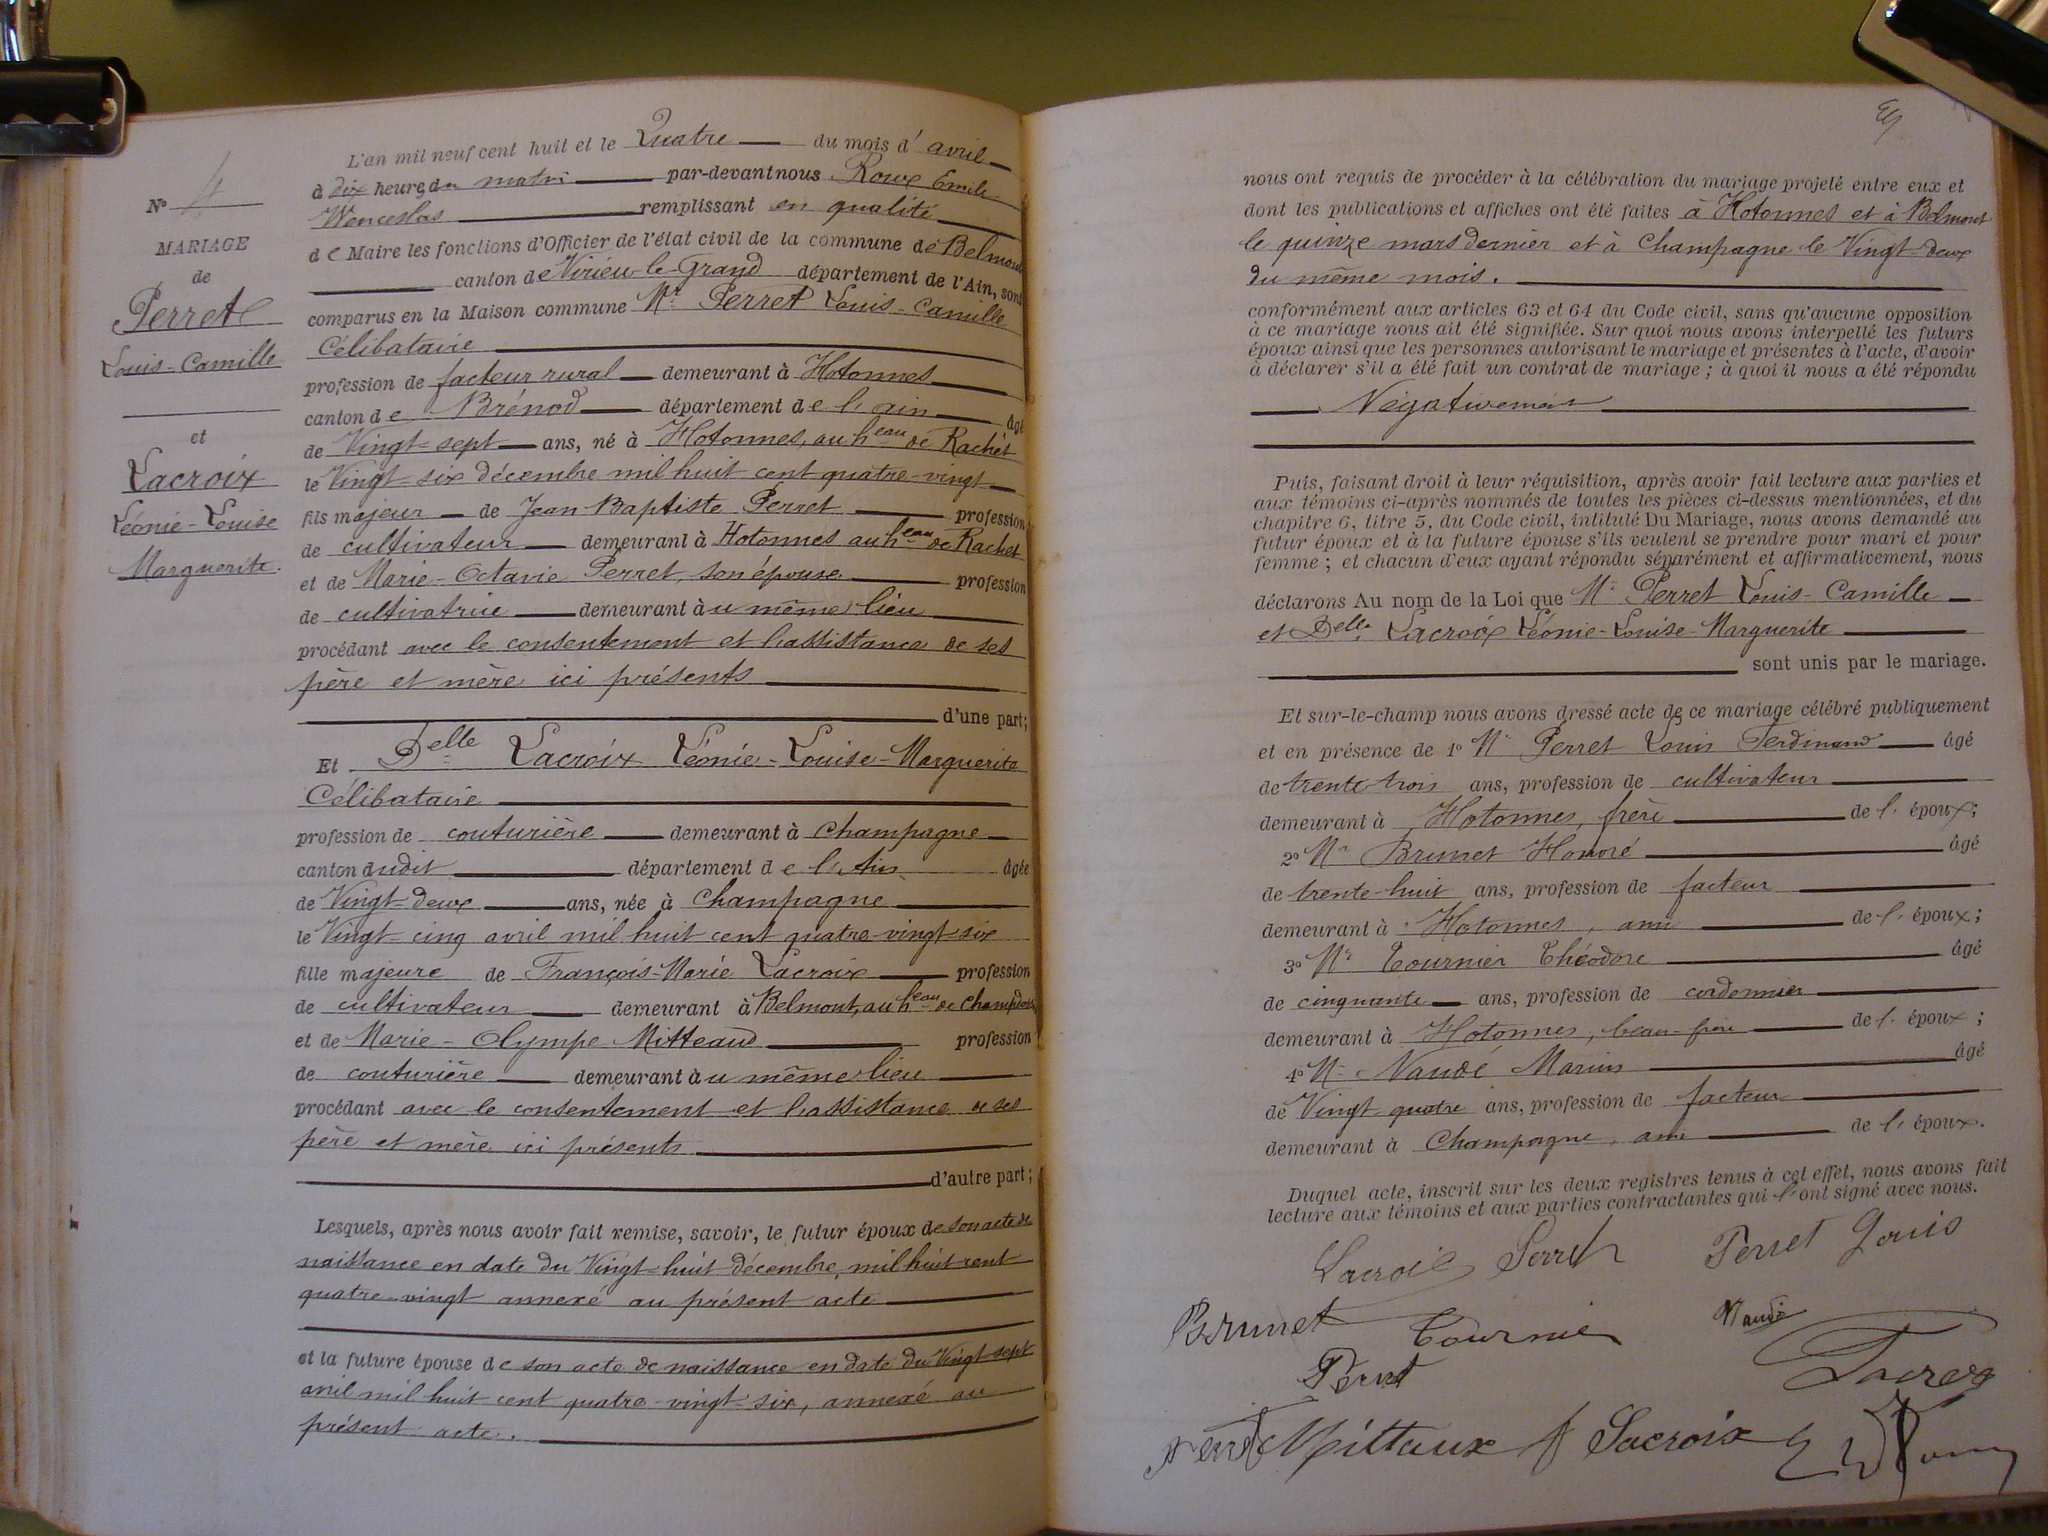 Nº 4
MARIAGE
de
Perret
Louis-Camille
et
Lacroix
Léonie-Louise
Marguerite.
L'an mil neuf cent huit et le Quatre du mois d'avril
à dix heures du matin par-devant nous Roux Emile
Wenceslas remplissant en qualité
de Maire les fonctions d'Officier de l'état civil de la commune de Belmont
canton de Virieu-le-Grand département de l'Ain, sont
comparus en la Maison commune Mr Perret Louis-Camille
Célibataire
profession de facteur rural demeurant à Hotonnes
canton de Brénod département de l'ain âgé
de Vingt-sept ans, né à Hotonnes, au heau de Rachet
le Vingt-six décembre mil huit cent quatre-vingt
fils majeur de Jean Baptiste Perret profession
de cultivateur demeurant à Hotonnes au heau de Rachet
et de Marie-Octavie Perret, son épouse profession
de cultivatrice demeurant à u même lieu
procédant avec le consentement et l'assistance de ses
père et mère ici présents
d'une part;
Et Delle Lacroix Léonie-Louise-Marguerite
Célibataire
profession de couturière demeurant à Champagne
canton dudit département de l'Ain âgée
de Vingt-deux ans, née à Champagne
le Vingt-cinq avril mil huit cent quatre-vingt-six
fille majeure de François-Marie Lacroix profession
de cultivateur demeurant à Belmont, au heau de Champdossin
et de Marie-Olympe Mitteaud profession
de couturière demeurant à u même lieu
procédant avec le consentement et l'assistance de ses
père et mère ici présents
d'autre part;
Lesquels, après nous avoir fait remise, savoir, le futur époux de son acte de
naissance en date du Vingt-huit décembre, mil huit cent
quatre-vingt annexé au présent acte
et la future épouse de son acte de naissance en date du Vingt sept
avril mil huit cent quatre-vingt-six, annexé au
présent acte.
nous ont requis de procéder à la célébration du mariage projeté entre eux et
dont les publications et affiches ont été faites à Hotonnes et à Belmont
le quinze mars dernier et à Champagne le Vingt-deux
du même mois.
conformément aux articles 63 et 64 du Code civil, sans qu'aucune opposition
à ce mariage nous ait été signifiée. Sur quoi nous avons interpellé les futurs
époux ainsi que les personnes autorisant le mariage et présentes à l'acte, d'avoir
à déclarer s'il a été fait un contrat de mariage; à quoi il nous a été répondu
Négativement
Puis, faisant droit à leur réquisition, après avoir fait lecture aux parties et
aux témoins ci-après nommés de toutes les pièces ci-dessus mentionnées, et du
chapitre 6, titre 5, du Code civil, intitulé Du Mariage, nous avons demandé au
futur époux et à la future épouse s'ils veulent se prendre pour mari et pour
femme; et chacun d'eux ayant répondu séparément et affirmativement, nous
déclarons Au nom de la Loi que Mr Perret Louis-Camille
et Delle Lacroix Léonie-Louise-Marguerite
sont unis par le mariage.
Et sur-le-champ nous avons dressé acte de ce mariage célébré publiquement
et en présence de 1º Mr Perret Louis Ferdinand âgé
de trente-trois ans, profession de cultivateur
demeurant à Hotonnes, frère de l'époux;
2º Mr Brunet Honoré âgé
de trente-huit ans, profession de facteur
demeurant à Hotonnes, ami de l'époux;
3º Mr Tournier Théodore âgé
de cinquante ans, profession de cordonnier
demeurant à Hotonnes, beau-frère de l'époux;
4º Mr Naudé Marius âgé
de Vingt quatre ans, profession de facteur
demeurant à Champagne, ami de l'époux.
Duquel acte, inscrit sur les deux registres tenus à cet effet, nous avons fait
lecture aux témoins et aux parties contractantes qui l'ont signé avec nous.
Perret Louis
Brunet Tournier Naudé
Perret
Mittaux Lacroix